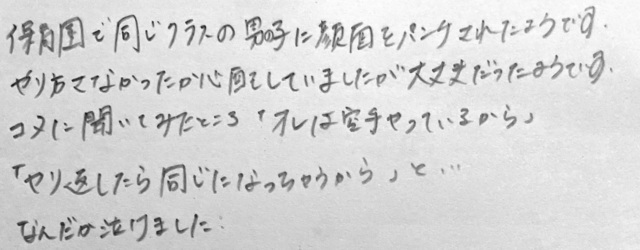 保育園で同じクラスの男の子に顔面をパンチされたようです.
やり方さなかったか心配をしていましたが大丈夫だったようです.
コヌに聞いてみたところ「オレは空手やっているから」
「やり返したら同じになっちゃうから」と…
なんだか泣けました: